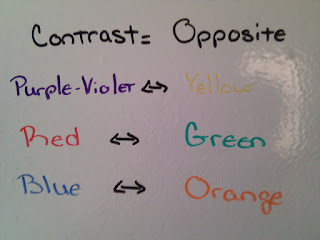 Contrast = Opposite
Purple-Violet ↔ Yellow
Red ↔ Green
Blue ↔ Orange